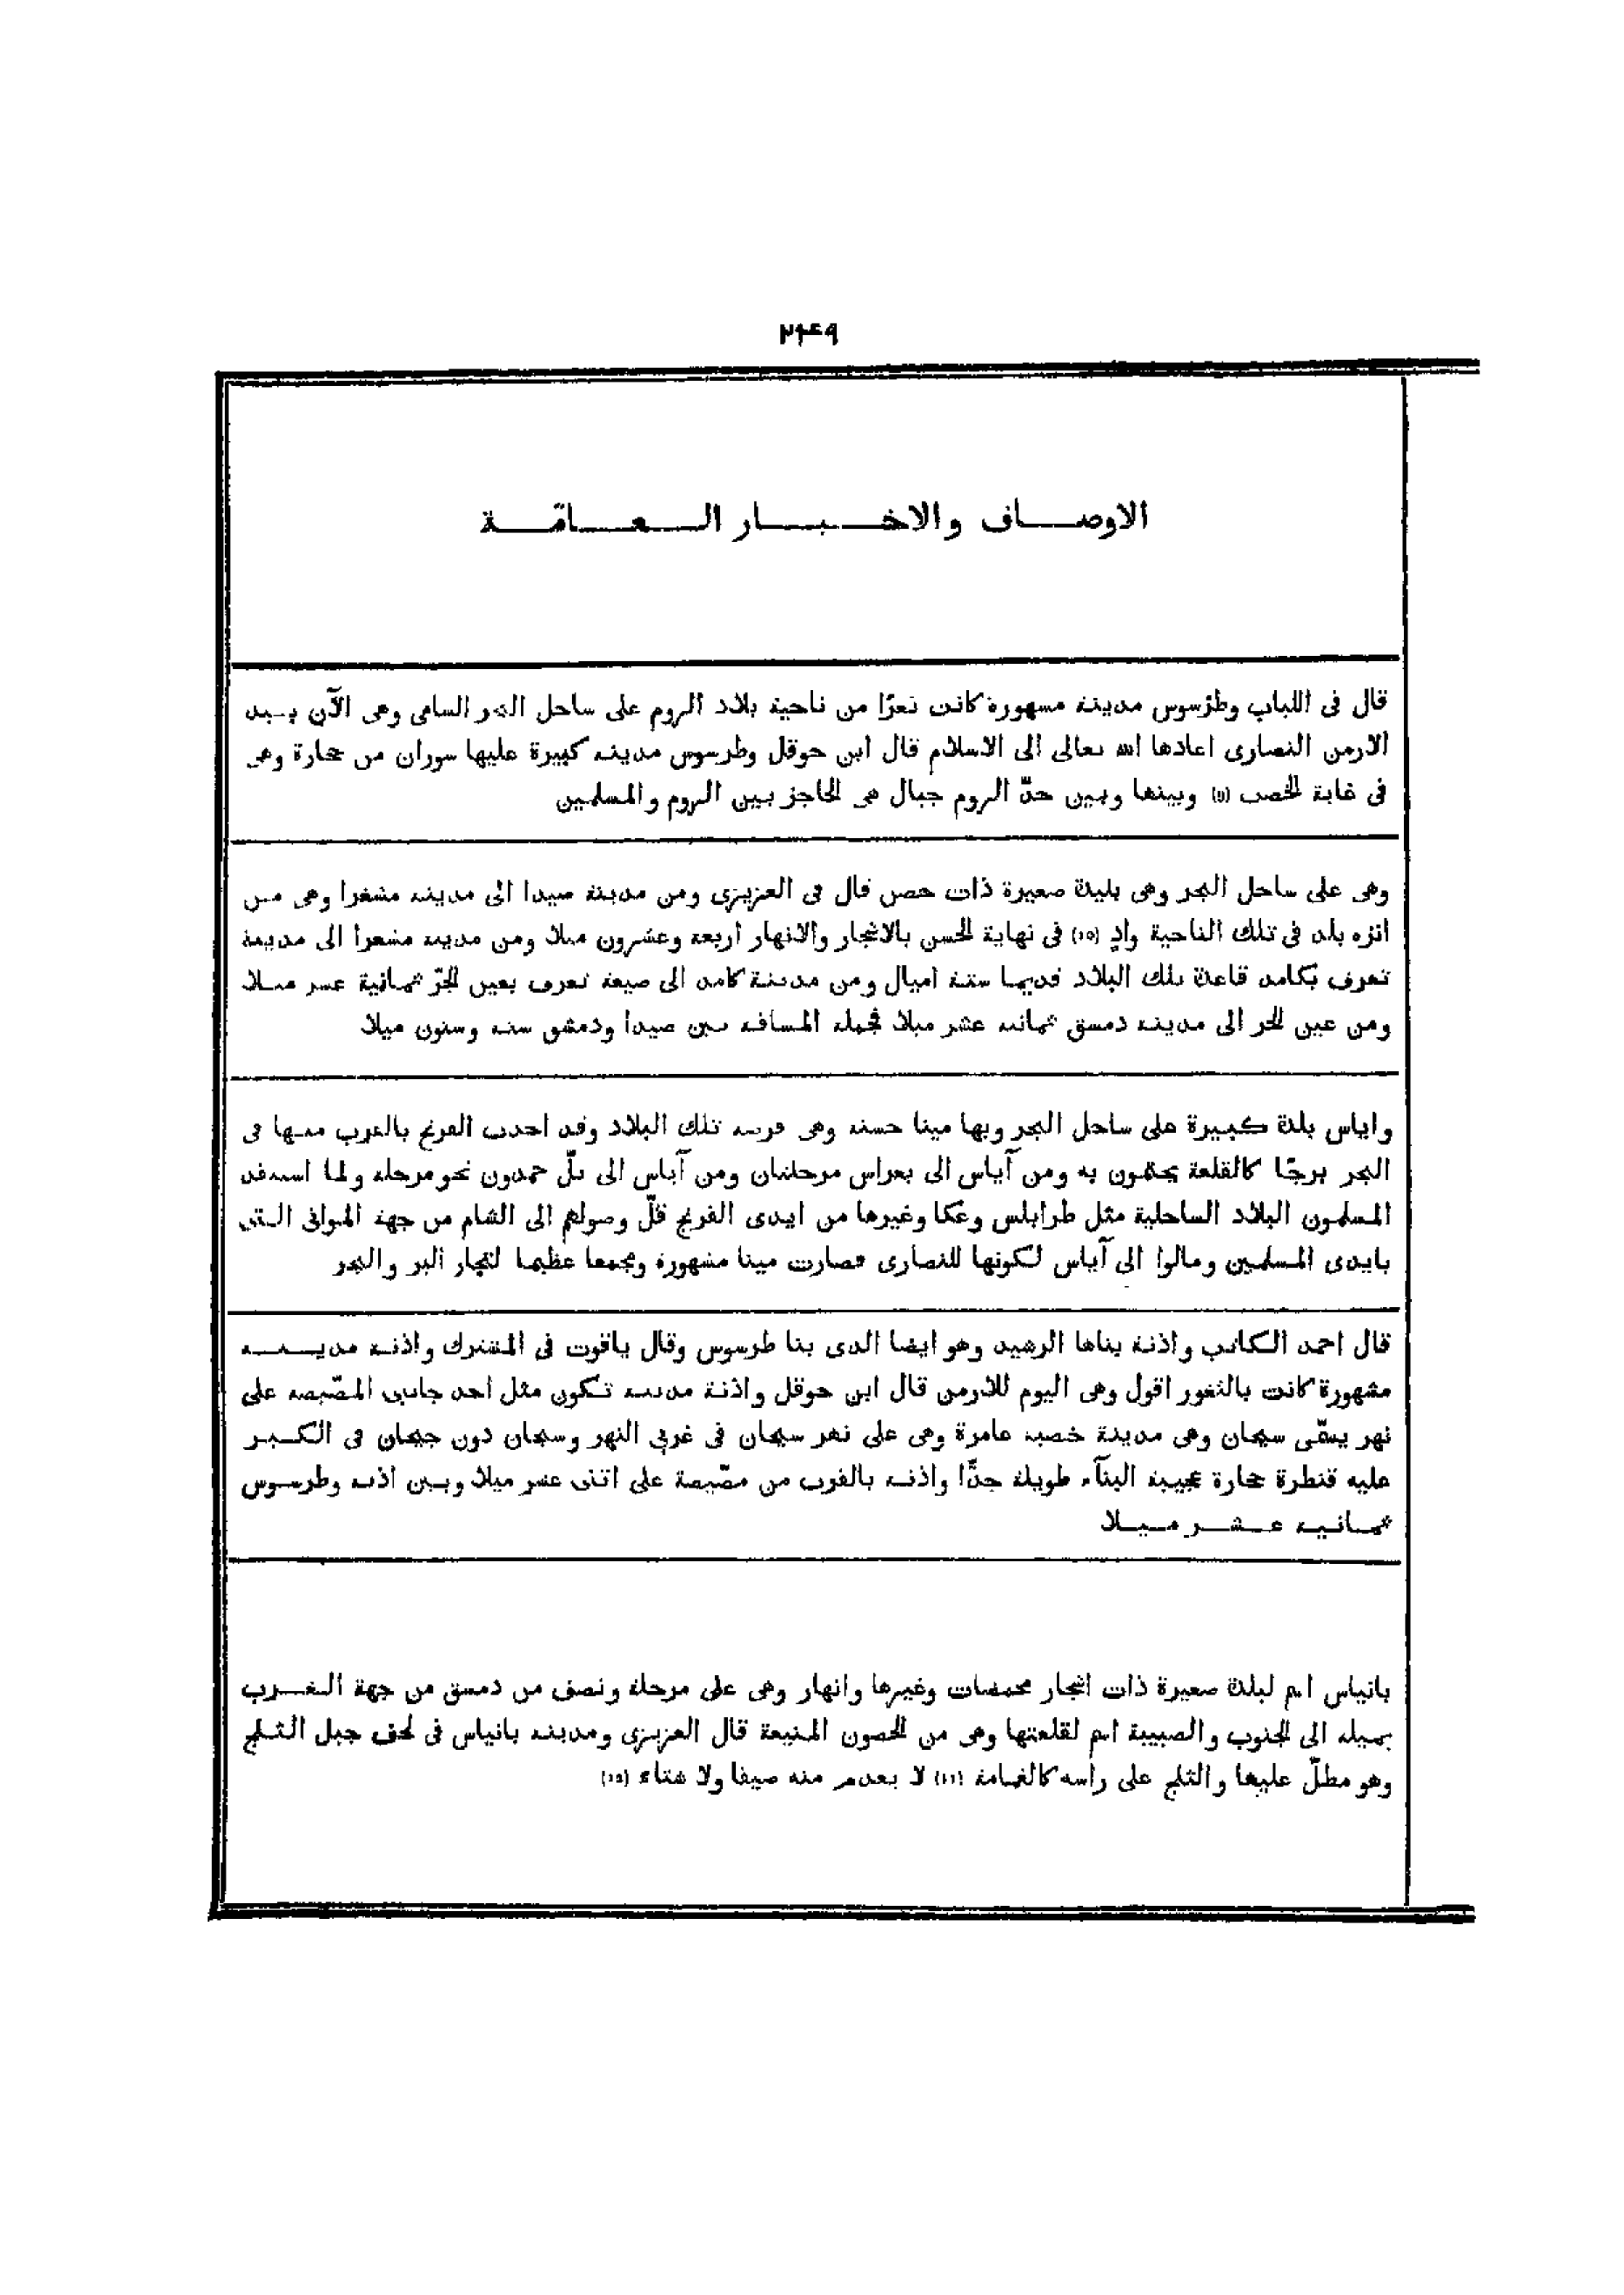 ٢٤٩
الاوصاف والاخبار العامّة
قال فى اللباب وطرسوس مدينة مشهورة كانت ثغرًا من ناحية بلاد الروم على ساحل البحر الشامى وهى الآن بيد
الارمن النصارى اعادها الله تعالى الى الاسلام قال ابن حوقل وطرسوس مدينة كبيرة عليها سوران من حجارة وهى
فى غاية الخصب (٩) وبينها وبين حدّ الروم جبال هى الحاجز بين الروم والمسلمين
وهى على ساحل البحر وهى بليدة صغيرة ذات حصن قال فى العزيزى ومن مدينة صيدا الى مدينة مشغرا وهى من
انزه بلد فى تلك الناحية وادٍ (١٥) فى نهاية الحسن بالاشجار والانهار اربعة وعشرون ميلا ومن مدينة مشغرا الى مدينة
تعرف بكامد قاعدة تلك البلاد قديما ستة اميال ومن مدينة كامد الى ضيعة تعرف بعين الجرّ ثمانية عشر ميلا
ومن عين الجر الى مدينة دمشق ثمانية عشر ميلا فجملة المسافة بين صيدا ودمشق ستة وستون ميلا
واياس بلدة كبيرة على ساحل البحر وبها مينا حسنة وهى فرضة تلك البلاد وقد احدث الفرنج بالقرب منها فى
البحر برجًا كالقلعة يحتمون به ومن آياس الى بغراس مرحلتان ومن آياس الى تلّ حمدون نحو مرحلة ولما استنقذ
المسلمون البلاد الساحلية مثل طرابلس وعكا وغيرها من ايدى الفرنج قلّ وصولهم الى الشام من جهة الموانى التى
بايدى المسلمين ومالوا الى آياس لكونها للنصارى فصارت مينا مشهورة ومجمعا عظيما لتجار البر والبحر
قال احمد الكاتب واذنة بناها الرشيد وهو ايضا الذى بنا طرسوس وقال ياقوت فى المشترك واذنة مدينة
مشهورة كانت بالثغور اقول وهى اليوم للارمن قال ابن حوقل واذنة مدينة تكون مثل احد جانبى المصّيصة على
نهر يسمّى سيحان وهى مدينة خصبة عامرة وهى على نهر سيحان فى غربى النهر وسيحان دون جيحان فى الكبر
عليه قنطرة حجارة عجيبة البنآء طويلة جدًّا واذنة بالقرب من مصّيصة على اثنى عشر ميلا وبين اذنة وطرسوس
ثمانية عشر ميلا
بانياس اسم لبلدة صغيرة ذات اشجار محمضات وغيرها وانهار وهى على مرحلة ونصف من دمشق من جهة الغرب
بميلة الى الجنوب والصبيبة اسم لقلعتها وهى من الحصون المنيعة قال العزيزى ومدينة بانياس فى لحف جبل الثلج
وهو مطلّ عليها والثلج على راسه كالغمامة (١١) لا يعدم منه صيفا ولا شتاء (١٢)